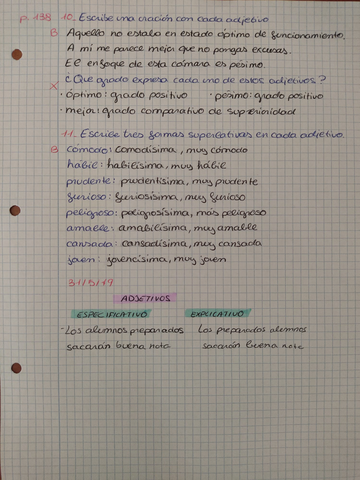 p. 138 10. Escribe una oración con cada adjetivo
B Aquello no estaba en estado óptimo de funcionamiento.
A mi me parece mejor que no pongas excusas.
El enfoque de esta cámara es pésimo.
¿Que grado expresa cada uno de estos adjetivos?
X · óptimo: grado positivo · pésimo: grado positivo
· mejor: grado comparativo de superioridad
11. Escribe tres formas superlativas en cada adjetivo.
B cómodo: comodísima, muy cómodo
hábil: habilísima, muy hábil
prudente: prudentísima, muy prudente
furioso: furiosísima, muy furioso
peligroso: peligrosísima, más peligroso
amable: amabilísima, muy amable
cansada: cansadísima, muy cansada
joven: jovencísima, muy joven
31/5/19
ADJETIVOS
ESPECIFICATIVO EXPLICATIVO
-Los alumnos preparados Los preparados alumnos
sacarán buena nota sacarán buena nota